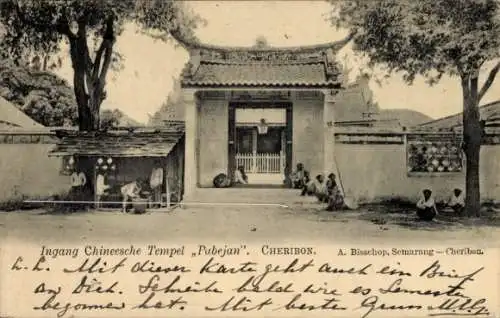 Ingang Chineesche Tempel „Pabejan“. CHERIBON. A. Bisschop, Semarang — Cheribon.
L. H. Mit dieser Karte geht auch ein Brief
an Dich. Schreibe bald wieder, es Semester
begonnen hat. Mit besten Grüssen